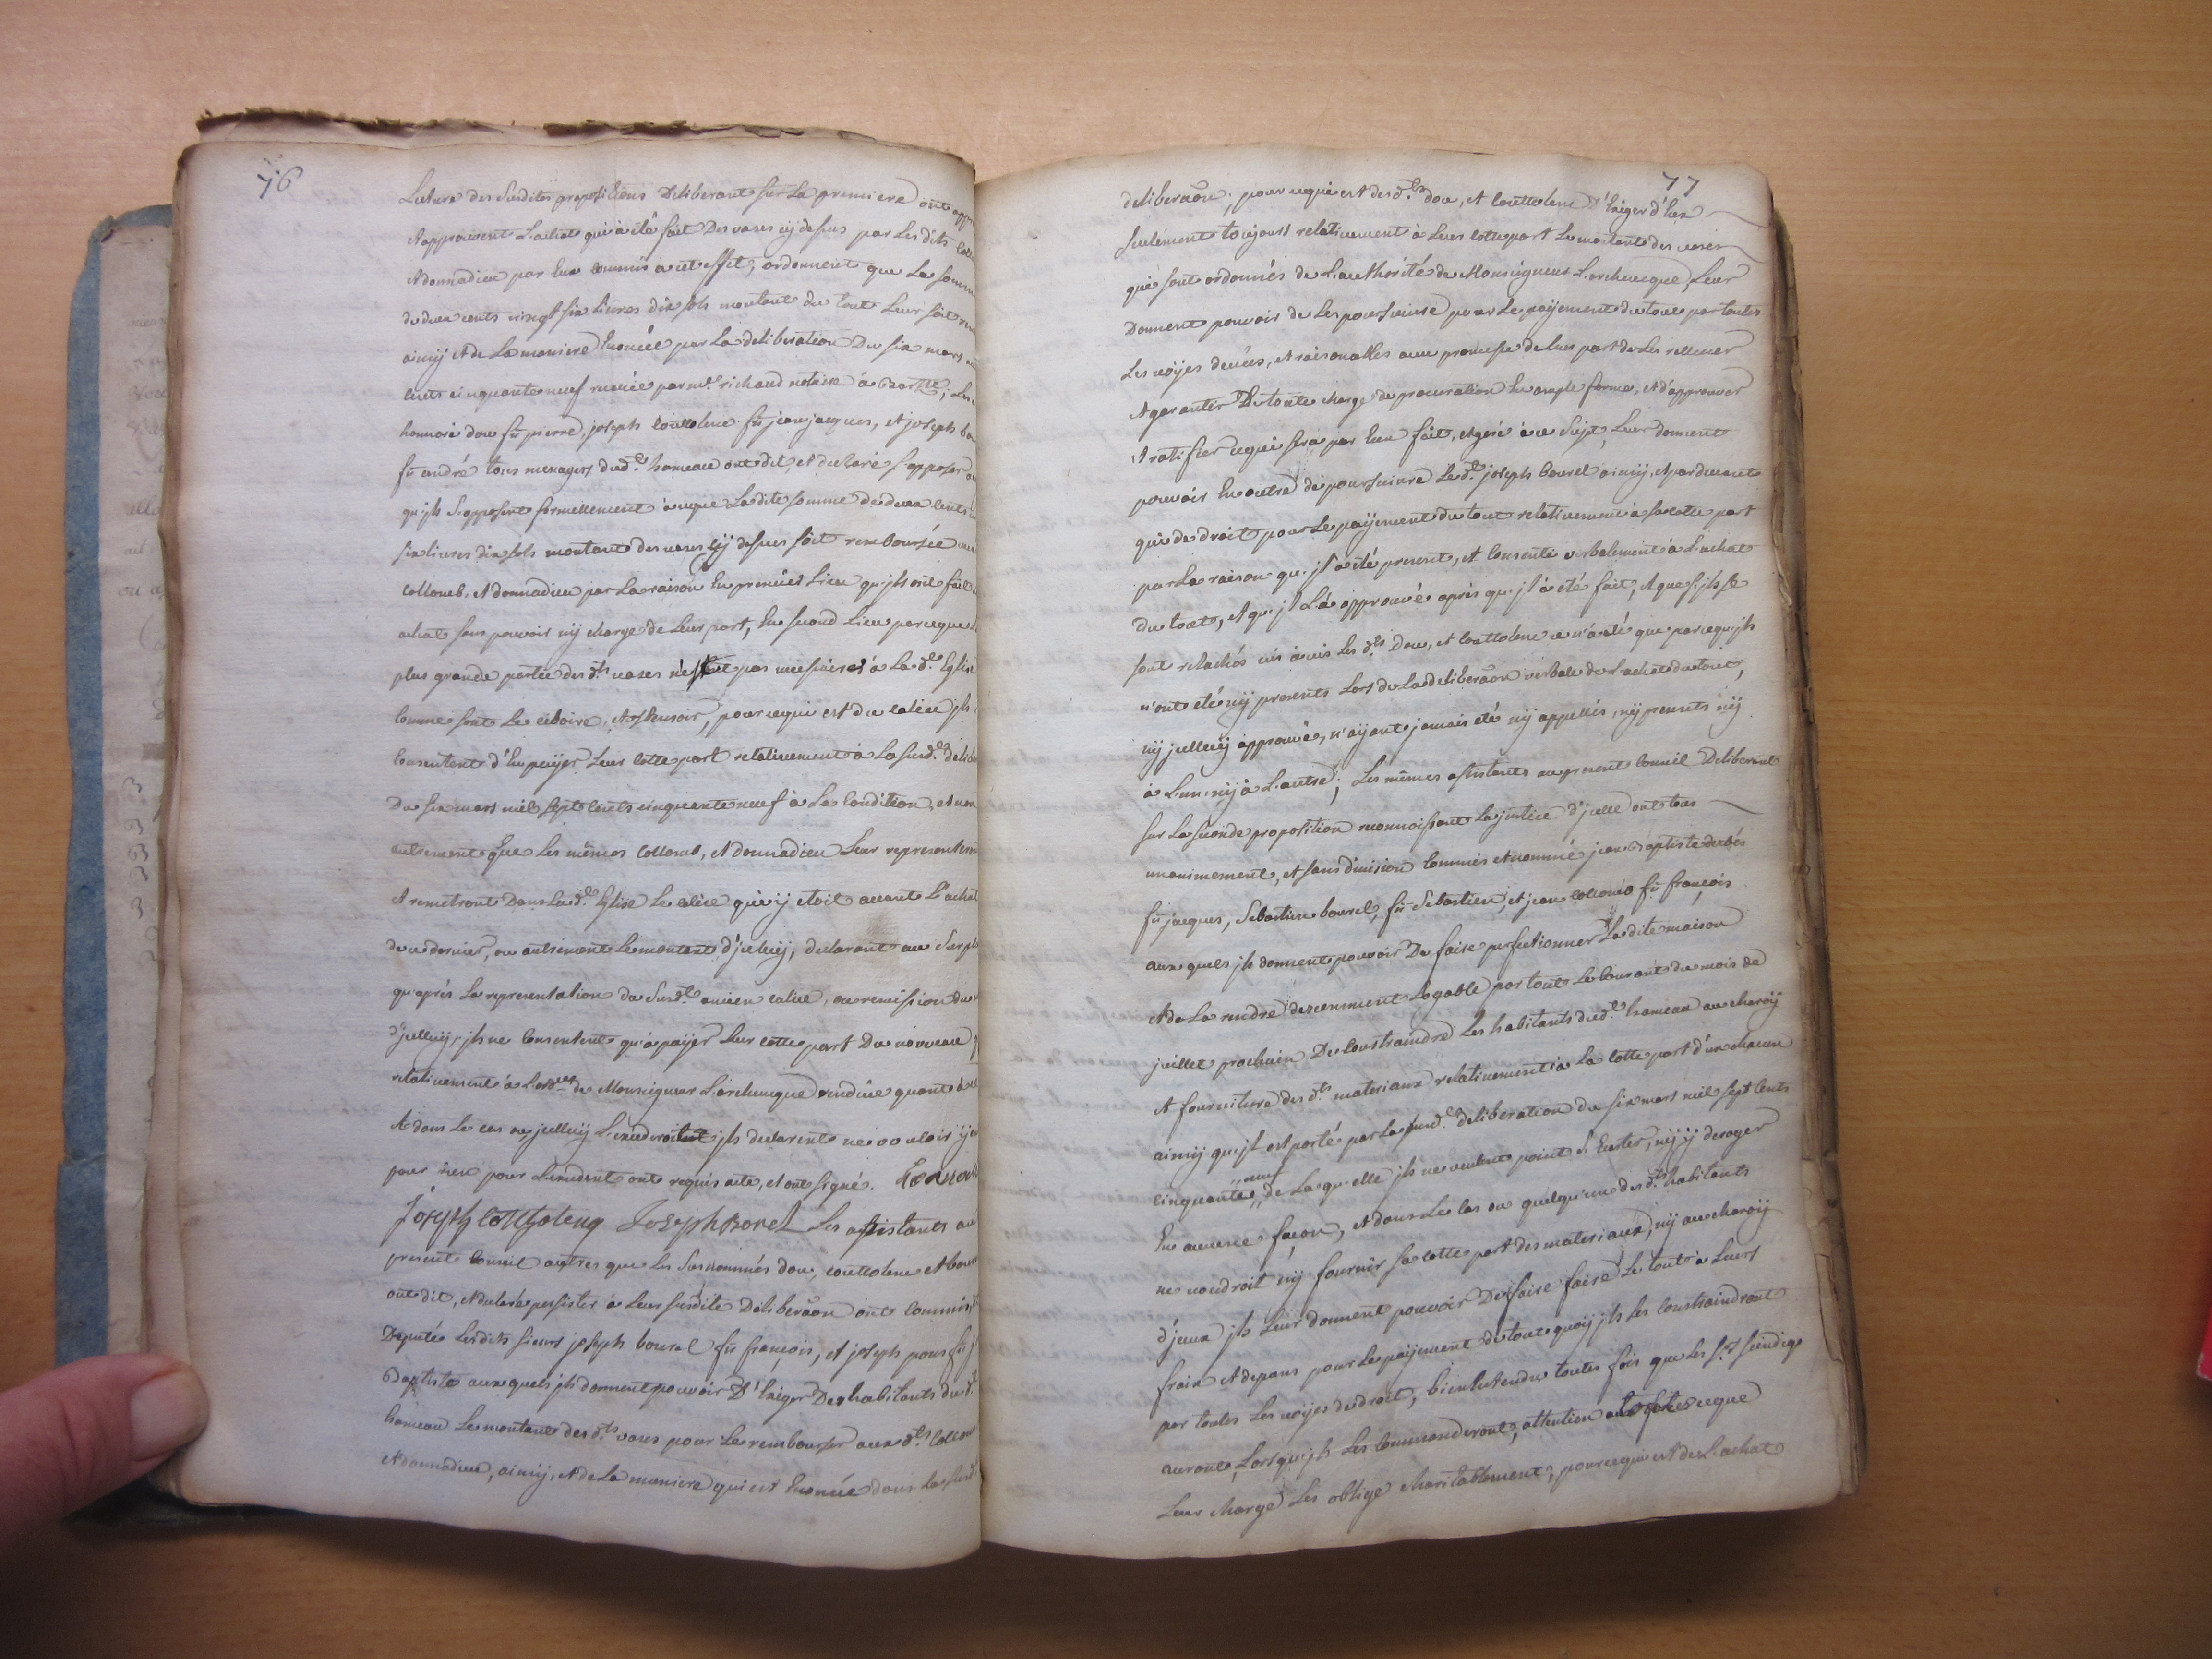 76
Lecture des susdites propositions Deliberants sur La premiere ont app
et approuvent L'achat qui a eté fait Des vases cy dessus par Les dits Coll
et donnadieu par Eux commis a cet effet, ordonnent que La somme
de deux cents vingt six Livres dix sols montant du tout Leur soit
ainsy et de La maniere Enoncée par La deliberation Du six mars
cents cinquante neuf receüe par me richaud notaire à ; Les
honnoré dou fû pierre, joseph Couttolenc fû jean jacques, et joseph bou
fû andré tous menagers dud. hameau ont dit, et declaré s'opposer
qu'jls S'opposent formellement à ce que Ladite somme de deux cents
six livres dix sols montant des vases cy dessus soit remboursée
Colloub, et donnadieu par La raison En premier Lieu qu'jls ont fait
achat sans pouvoir ny charge de Leur part, En second Lieu parceque
plus grande partie des dts vases n'est pas necessaires à La de Eglise
Comme sont Le ciboire, et ostensoir, pour ce qui est du calice jls
Consentent d'En payer Leur cotte part relativement à La susd. delib
Du six mars mil sept cents cinquante neuf à La Condition, et non
autrement que Les mêmes Colloub, et donnadieu Leur representeront
Et remetront Dans Lad. Eglise Le calice qui y etoit avant L'achat
de ce dernier, ou autrement Le montant d'jcelluy, declarant au Surpl
qu'après La representation du Susdt ancien calice, ou remission du
d'jcelluy, jls ne Consentent qu'à payer Leur cotte part Du nouveau
relativement à L'ord.ce de Monseigneur L'archeveque rendüe quant à
et dans Le cas ou jcelluy L'excederoit jls declarent ne vouloir y
pour rien pour L'excedent ont requis acte, et ont signé.
Joseph Couttolenq Joseph Borel Les assistants au
present Conseil autres que Les Susnommés dou, couttolenc et bou
ont dit, et declaré persister à Leur susdite Deliberãon ont Commis
Deputé Lesdits sieurs joseph bourel fû françois, et joseph pons fû j
Baptiste aux quels jls donnent pouvoir D'Exiger Des habitants dud.
hameau Le montant des dts vases pour Le rembourser aux dts Colloub
et donnadieu, ainsy, et de La maniere qui est Enoncée dans La susd
77
deliberãon; pour ce qui est des dts dou, et Couttolenc D'Exiger d'Eux
seulement toujours relativement à Leur cotte part Le montant des vases
qui sont ordonnés de L'authorité de Monseigneur L'archeveque, Leur
Donnent pouvoir de Les poursuivre pour Le payement du tout par toutes
Les voyes deües, et raisonables avec promesse de Leur part de Les rellever
et garantir De toute charge de procuration En ample forme, et d'approuver
et ratifier ce qui sera par Eux fait, et geré à ce Sujet, Leur donnent
pouvoir En outre de poursuivre Le dt joseph bourel ainsy, et par devant
qui de droit pour Le payement du tout relativement à sa cotte part
par La raison qu'jl a eté present, et Consenti verbalement à L'achat
du tout, et qu'jl L'a approuvé après qu'jl a eté fait, et que s'jls se
sont relachés vis à vis Les dts Dou, et Couttolenc ce n'a eté que parcequ'jls
n'ont eté ny presents Lors de La deliberãon verbale de L'achat du tout,
ny jcelluy approuvé, n'ayant jamais eté ny appellés, ny presents ny
à L'un, ny à L'autre; Les mêmes assistants au present Conseil Deliberant
sur La seconde proposition reconnoissant La justice d'jcelle ont tous
unanimement, et sans division Commis et nommé jean Baptiste derbés
fû jacques, Sebastien bourel fû Sebastien, et jean Colloub fû françois
aux quels jls donnent pouvoir De faire perfectionner La dite maison
et de La rendre descemment Logable par tout Le Courant du mois de
juillet prochain De Constraindre Les habitants dud. hameau au charoy
et fourniture des dts materiaux relativement à La cotte part d'un chacun
ainsy qu'jl est porté par La susd. deliberation du six mars mil sept cents
cinquante neuf, de La quelle jls ne veulent point S'Ecarter, ny y deroger
En aucune façon, et dans Le Cas ou quelqu'un des dts habitants
ne voudroit ny fournir sa cotte part des materiaux, ny au charoy
d'jceux jls Leur donnent pouvoir De faire faire Le tout à Leurs
fraix et depans pour Le payement du tout quoy jls Les Constraindront
par toutes Les voyes de droit, bien Entendu toutes fois que Les srs sindics
auront, Lorsqu'jls Les Commanderont, attention à ce que
Leur charge Les oblige charitablement, pour ce qui est de L'achat